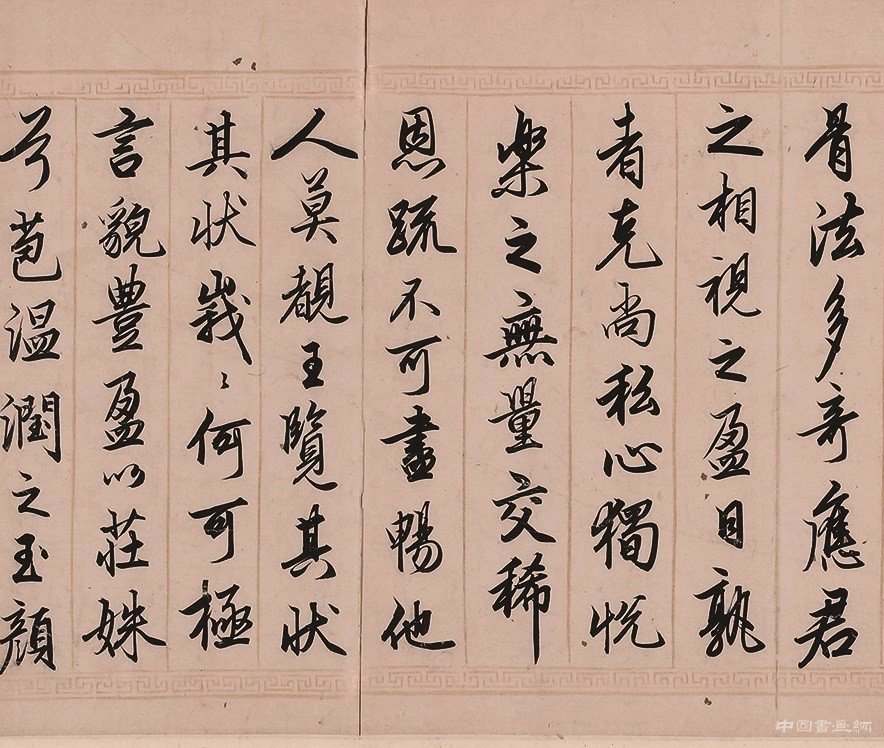 骨法多奇應君
之相視之盈目孰
者克尚私心獨悅
樂之無量交稀
恩疏不可盡暢他
人莫覩王覽其狀
其狀峩〻何可極
言貌豐盈以莊姝
兮苞溫潤之玉顏
中国書画網